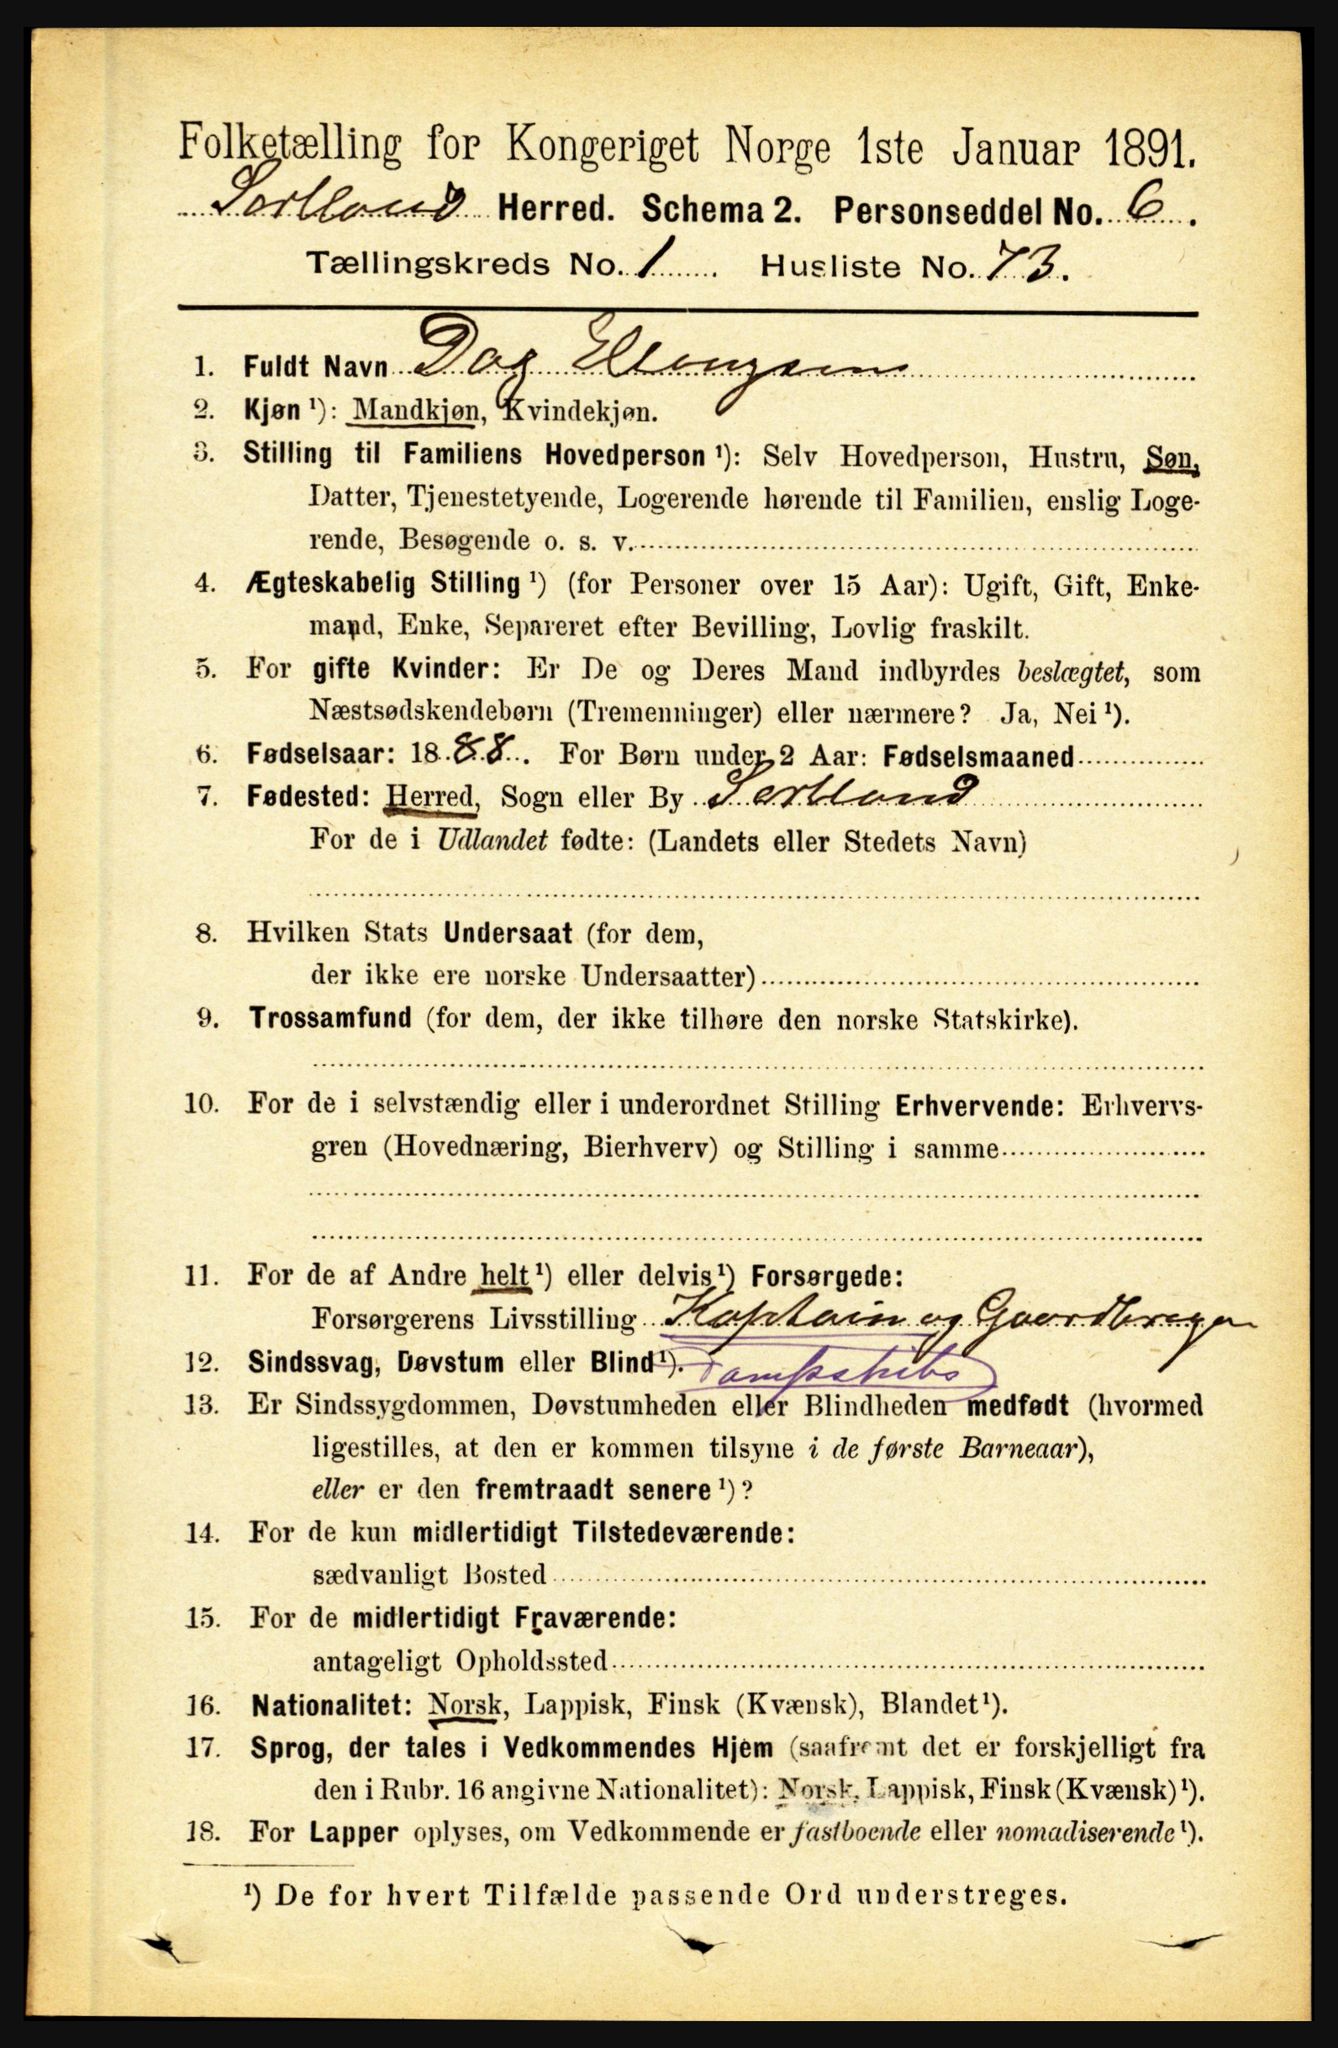 Folketælling for Kongeriget Norge 1ste Januar 1891.
Sortland Herred. Schema 2. Personseddel No. 6.
Tællingskreds No. 1 Husliste No. 73.
1. Fuldt Navn Dag Ellingsen
2. Kjøn ¹): Mandkjøn, Kvindekjøn.
3. Stilling til Familiens Hovedperson ¹): Selv Hovedperson, Hustru, Søn,
Datter, Tjenestetyende, Logerende hørende til Familien, enslig Loge-
rende, Besøgende o. s. v.
4. Ægteskabelig Stilling ¹) (for Personer over 15 Aar): Ugift, Gift, Enke-
mand, Enke, Separeret efter Bevilling, Lovlig fraskilt.
5. For gifte Kvinder: Er De og Deres Mand indbyrdes beslægtet, som
Næstsødskendebørn (Tremenninger) eller nærmere? Ja, Nei ¹).
6. Fødselsaar: 1888. For Børn under 2 Aar: Fødselsmaaned
7. Fødested: Herred, Sogn eller By Sortland
For de i Udlandet fødte: (Landets eller Stedets Navn)
8. Hvilken Stats Undersaat (for dem,
der ikke ere norske Undersaatter)
9. Trossamfund (for dem, der ikke tilhøre den norske Statskirke).
10. For de i selvstændig eller i underordnet Stilling Erhvervende: Erhvervs-
gren (Hovednæring, Bierhverv) og Stilling i samme
11. For de af Andre helt ¹) eller delvis ¹) Forsørgede:
Forsørgerens Livsstilling Kaptain og Gaardbruger
12. Sindssvag, Døvstum eller Blind ¹). Dampskibs
13. Er Sindssygdommen, Døvstumheden eller Blindheden medfødt (hvormed
ligestilles, at den er kommen tilsyne i de første Barneaar),
eller er den fremtraadt senere ¹)?
14. For de kun midlertidigt Tilstedeværende:
sædvanligt Bosted
15. For de midlertidigt Fraværende:
antageligt Opholdssted
16. Nationalitet: Norsk, Lappisk, Finsk (Kvænsk), Blandet ¹).
17. Sprog, der tales i Vedkommendes Hjem (saafremt det er forskjelligt fra
den i Rubr. 16 angivne Nationalitet): Norsk, Lappisk, Finsk (Kvænsk) ¹).
18. For Lapper oplyses, om Vedkommende er fastboende eller nomadiserende ¹).
¹) De for hvert Tilfælde passende Ord understreges.